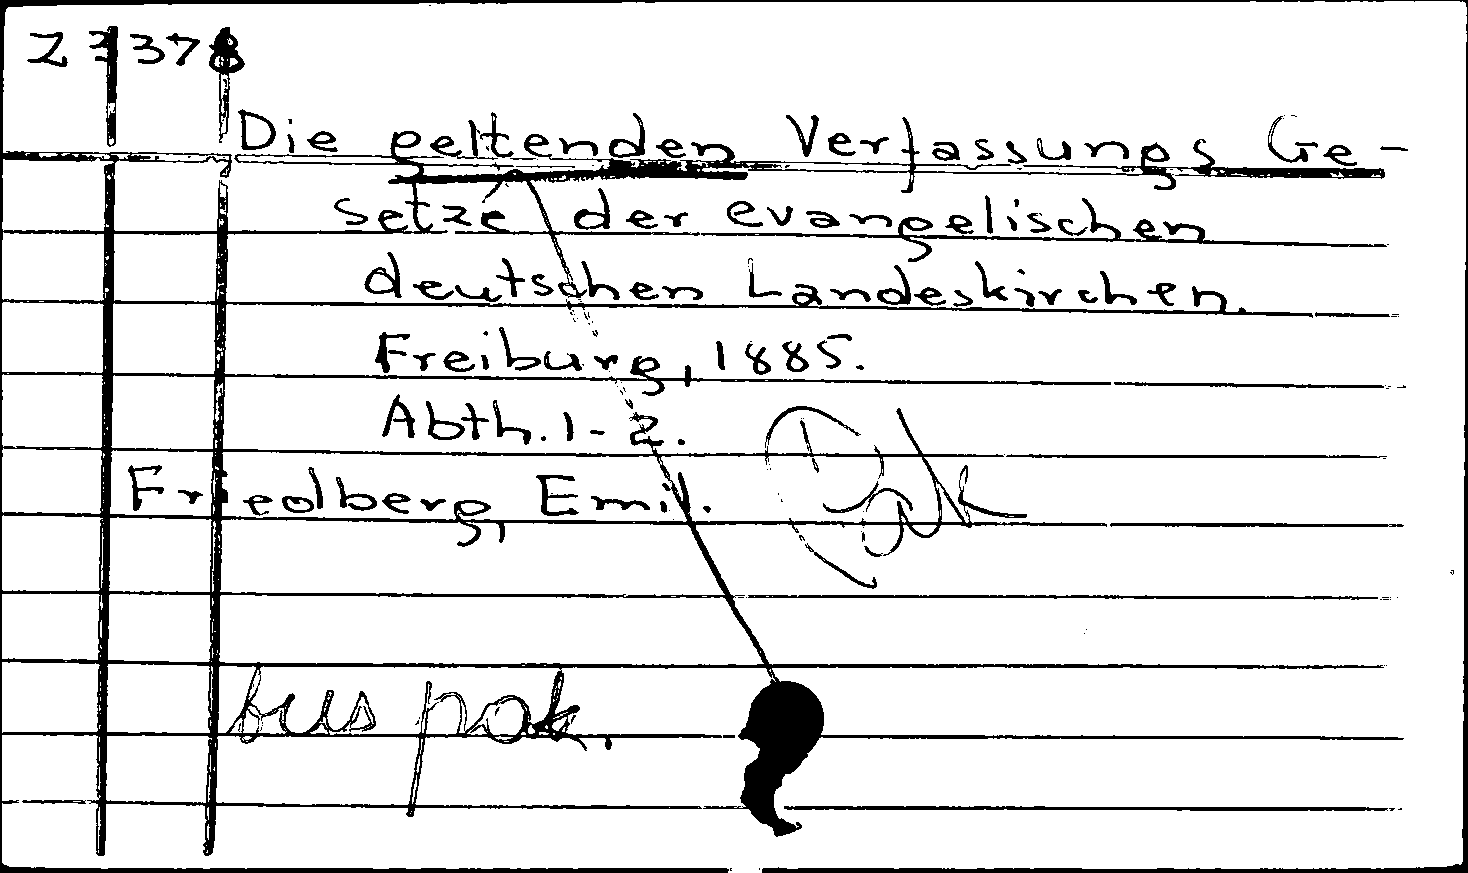 Z 3378
Die geltenden Verfassungs Ge-
setze der evangelischen
deutschen Landeskirchen.
Freiburg, 1885.
Abth. 1-2.
Friedberg, Emil.
bus pak.